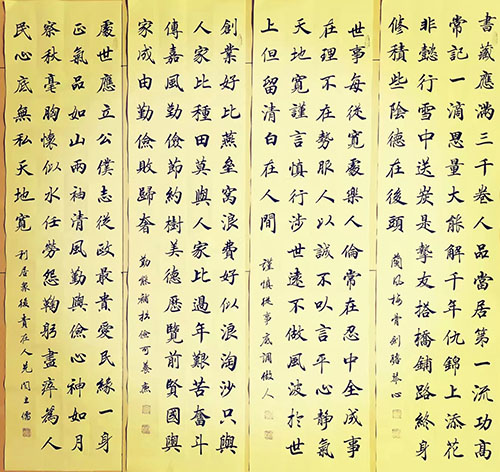 書藏應滿三千卷人品當居第一流功高
常記一滴恩量大能解千年仇錦上添花
非懿行雪中送炭是摯友搭橋鋪路終身
修積些陰德在後頭
蘭風梅骨劍膽琴心
世事每從寬處樂人倫常在忍中全成事
在理不在勢服人以誠不以言平心靜氣
天地寬謹言慎行涉世遠不做風波於世
上但留清白在人間
謹慎從事底調做人
創業好比燕壘窩浪費好似浪淘沙只與
人家比種田莫與人家比過年艱苦奮斗
傳嘉風勤儉節約樹美德歷覽前賢國與
家成由勤儉敗歸奢
勤能補拙儉可養廉
處世應立公僕志從政最貴愛民緣一身
正氣品如山兩袖清風勤與儉心神如月
察秋毫胸懷似水任勞怨鞠躬盡瘁為人
民心底無私天地寬
利居眾後責在人先